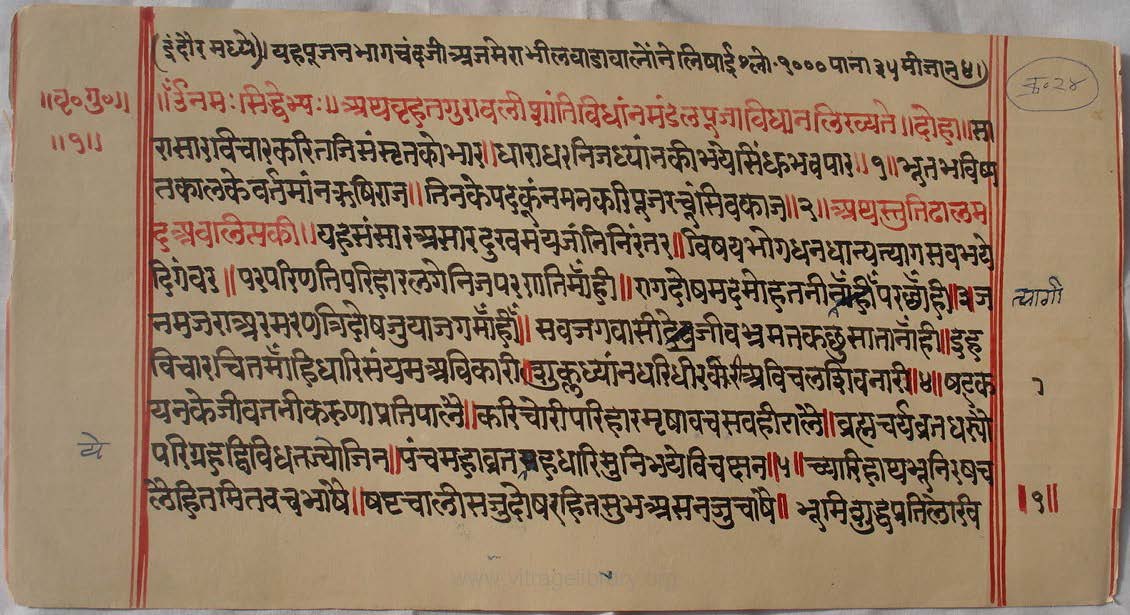 (इंदौर मध्ये)। यह पूजन भागचंदजी अजमेरा भीलवाडा वालोंने लिषाई श्लो. १००० पाना ३५ मीजान ४।)
क्र॰ २४
॥ वृ॰ गु॰॥
॥ १॥
॥ॐ नमः सिद्धेभ्यः॥ अथ वृहतगुरावली शांतिविधांनमंडल पूजाविधान लिख्यते॥ दोहा॥ सा
रासारविचारकरि तजि संसृतको भार॥ धाराधर निजध्यांनकी भये सिंधु भव पार॥ १॥ भूत भविष्य
तकालके वर्तमांन ऋषिराज॥ तिनके पदकूं नमनकरि पूजरचूं सिवकाज॥ २॥ अथ स्तुति ढाल म
द अवालिसकी॥ यह संसार असार दुखमय जांनि निरंतर॥ विषयभोग धनधान्य त्याग सव भये
दिगंवर॥ परपरिणति परिहार लगे निज परणति मॉंही॥ रागदोष मद मोह तनी नॉंही परछॉंही॥ ३ ज
त्यागी
नम जरा अर मरण त्रिदोष जु या जगमॉंही॥ सव जगवासी जीव भ्रमत कछु साता नॉंही॥ इह
विचार चितमॉंहि धारि संयम अविकारी॥ शुक्लध्यांन धरि धीर अविचल शिवनारी॥ ४॥ षटक
यनके जीव तनी करुणा प्रतिपालै॥ करि चोरी परिहार मृषावच सवही रालै॥ व्रह्मचर्यव्रत धस्यो
ये
परिग्रह द्विविध तज्यो जिन॥ पंच महाव्रत यह धारि मुनि भये विचक्षन॥ ५॥ च्यारि हाथ भू निरष च
लै हित मित वच भाषै॥ षट चालीस जु दोष रहित सुभ असन जु चाषै॥ भूमि शुद्ध प्रतिलेखि
॥ १॥
www.vitragelibrary.org